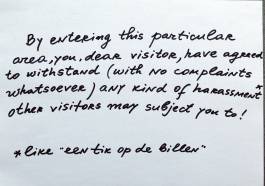 By entering this particular
area, you, dear visitor, have agreed
to withstand (with no complaints
whatsoever) any kind of harassment*
other visitors may subject you to!
*like "een tik op de billen"